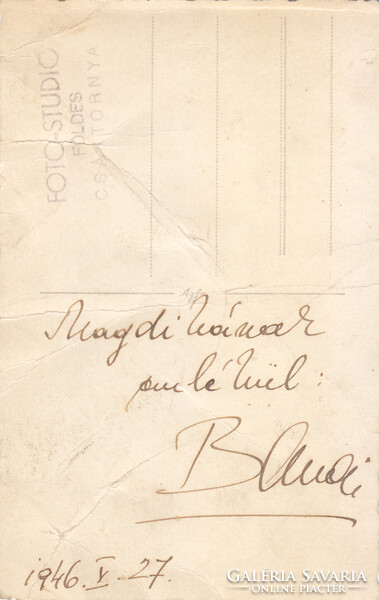 FOTO-STUDIO
FÖLDES
CSÁKTORNYA
Magdikának
emlékül:
Bandi
1946. V. 27.
GALÉRIA SAVARIA
ONLINE PIACTÉR